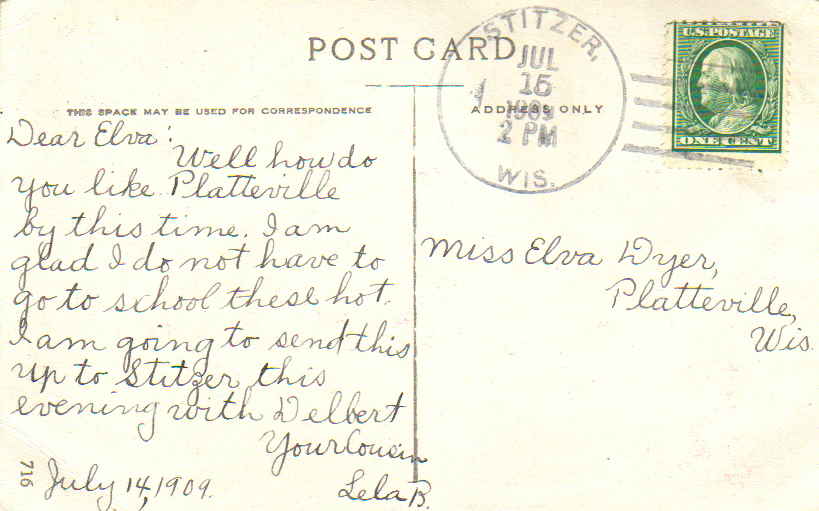 POST CARD
THIS SPACE MAY BE USED FOR CORRESPONDENCE
ADDRESS ONLY
STITZER,
JUL
15
1909
2 PM
WIS.
U.S. POSTAGE
ONE CENT
Dear Elva:
Well how do
you like Platteville
by this time. I am
glad I do not have to
go to school these hot.
I am going to send this
up to Stitzer this
evening with Delbert
Your Cousin
Lela B.
July 14, 1909.
716
Miss Elva Dyer,
Platteville,
Wis.